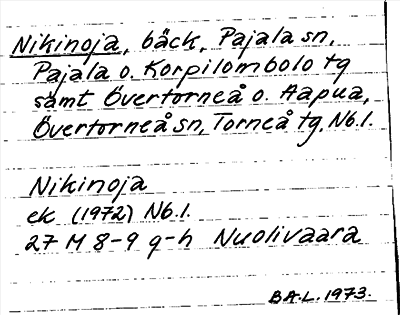 Nikinoja, bäck, Pajala sn,
Pajala o. Korpilombolo tg
samt Övertorneå o. Aapua,
Övertorneå sn, Torneå tg, Nb.l.
Nikinoja
ek (1972) Nb.l.
27 M 8-9 g-h Nuolivaara
B A-L. 1973.